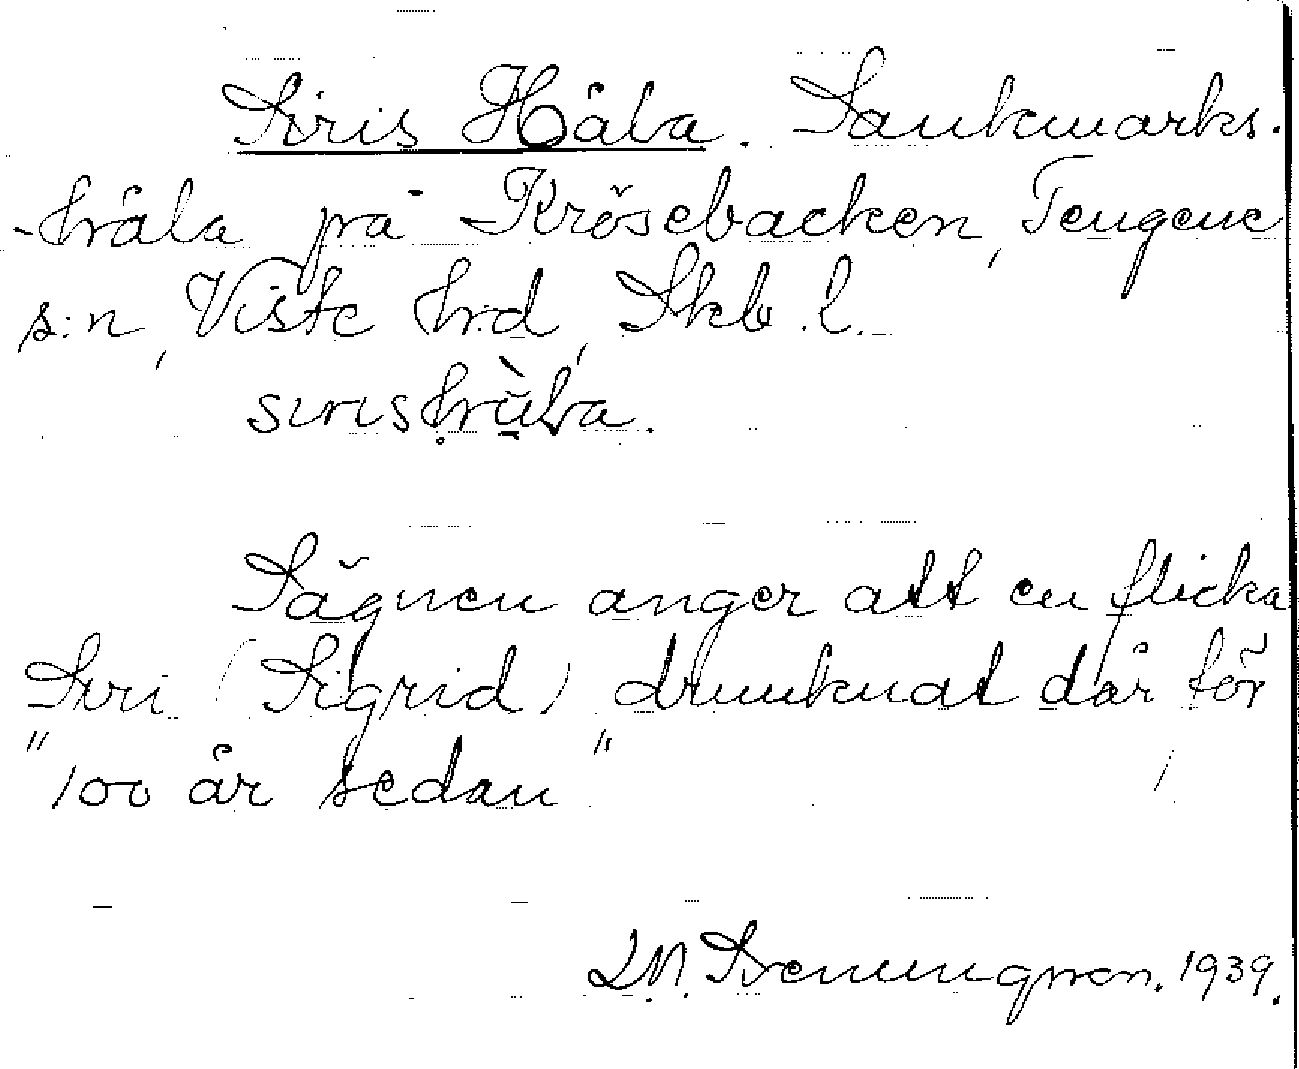 Siris Håla. Sankmarks-
-håla på Krösebacken, Tengene
s:n, Viste hrd, Skb. l.
Sägnen anger att en flicka
Siri (Sigrid) drunknat där för
"100 år sedan"
Svenungsson. 1939.